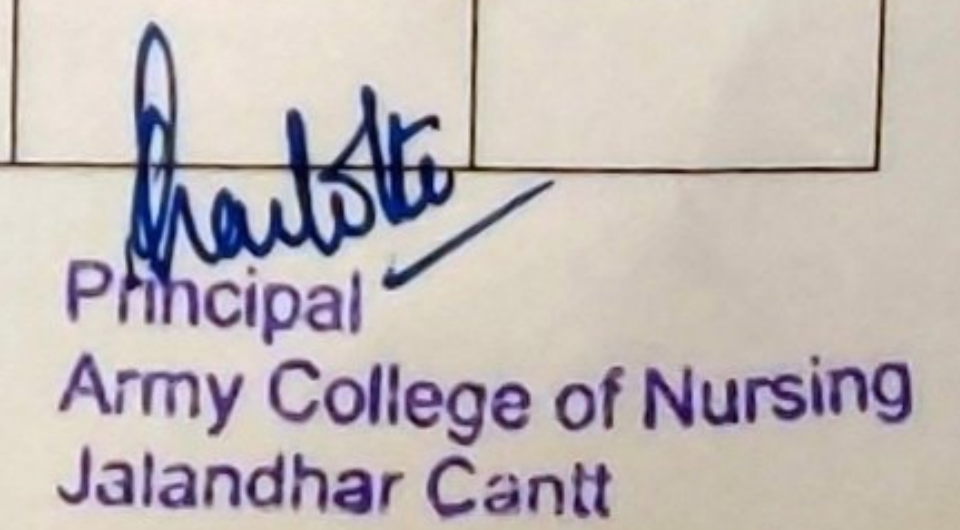 Charlotte
Principal
Army College of Nursing
Jalandhar Cantt